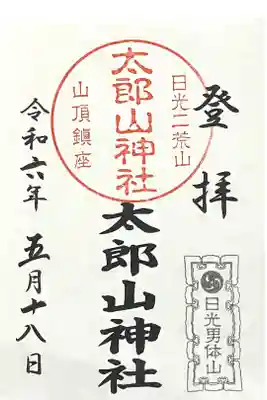 登拝
日光二荒山
太郎山神社
山頂鎮座
太郎山神社
日光男体山
令和六年 五月十八日